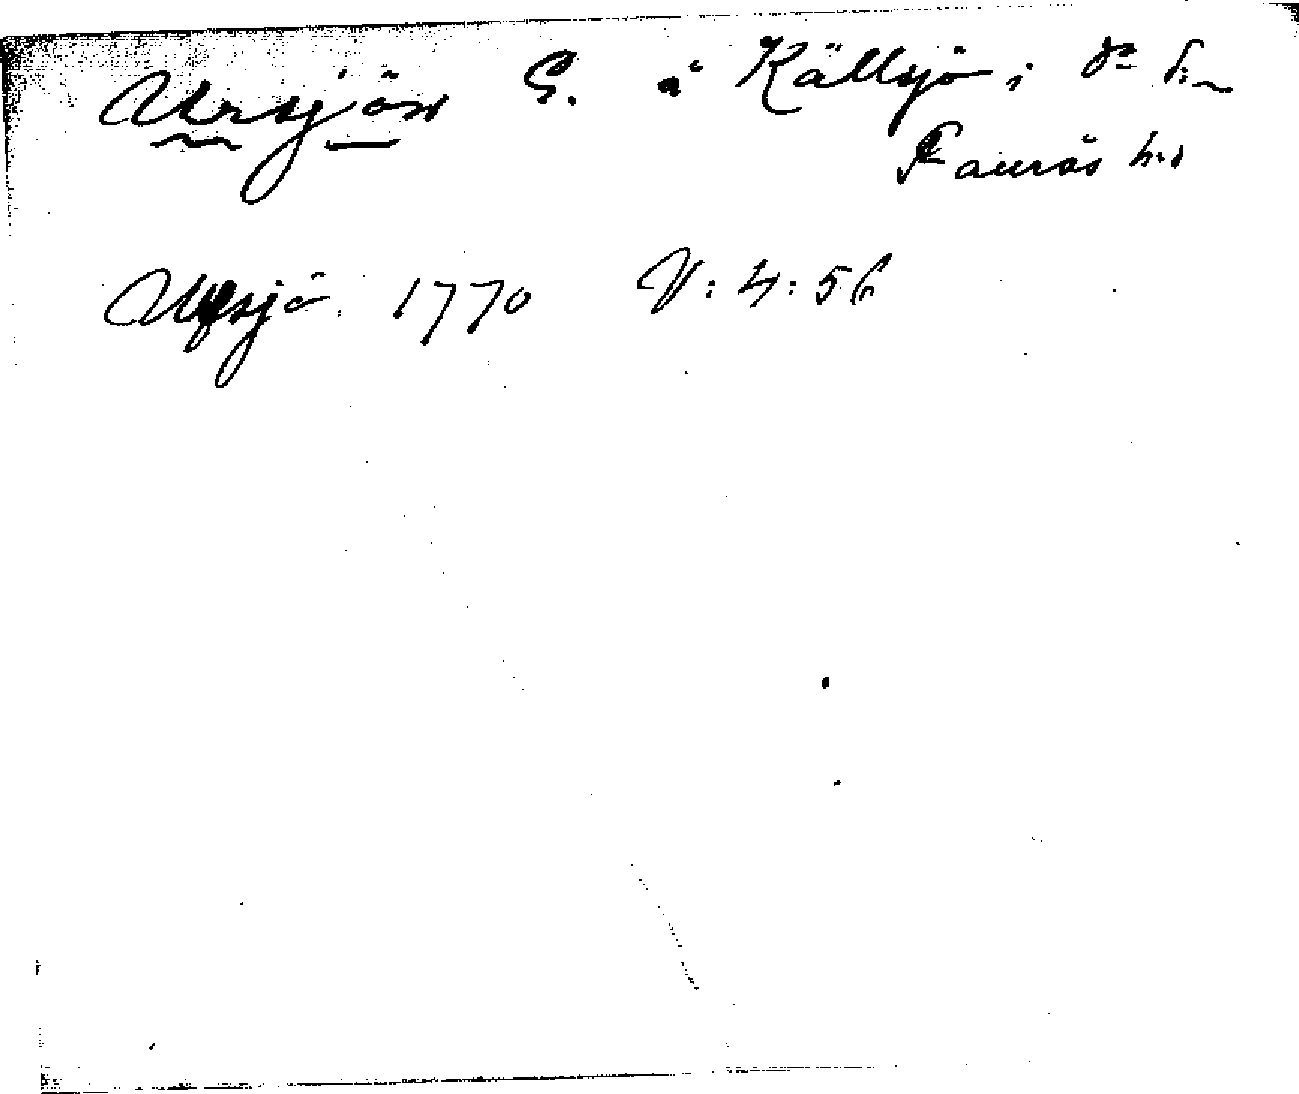 Ursjön S. å Källsjö i do s:n
Faurås hd
Ursjö. 1770 V:4:56